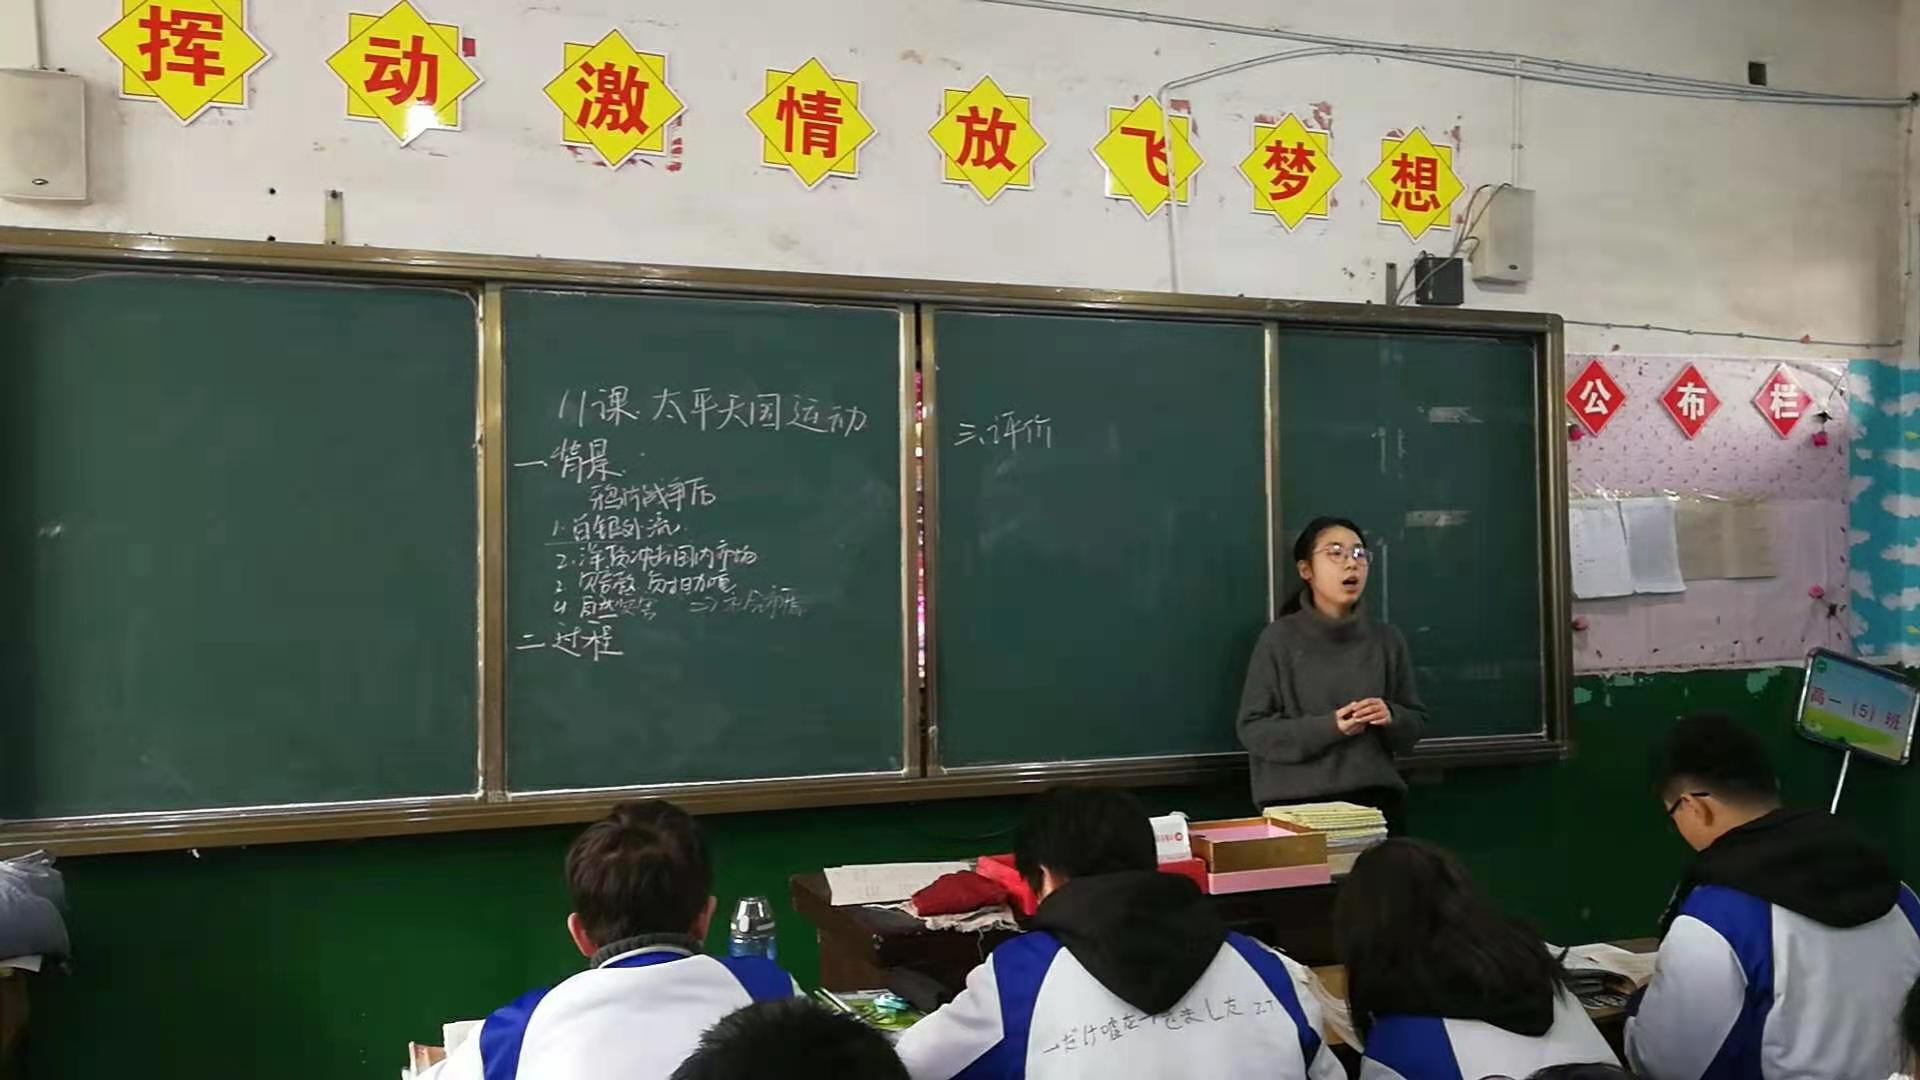 挥动激情放飞梦想
11课 太平天国运动
一、背景
鸦片战争后
1.白银外流
2.洋货冲击国内市场
3.
4.自然灾害
二、过程
三、评价
公布栏
高一（5）班